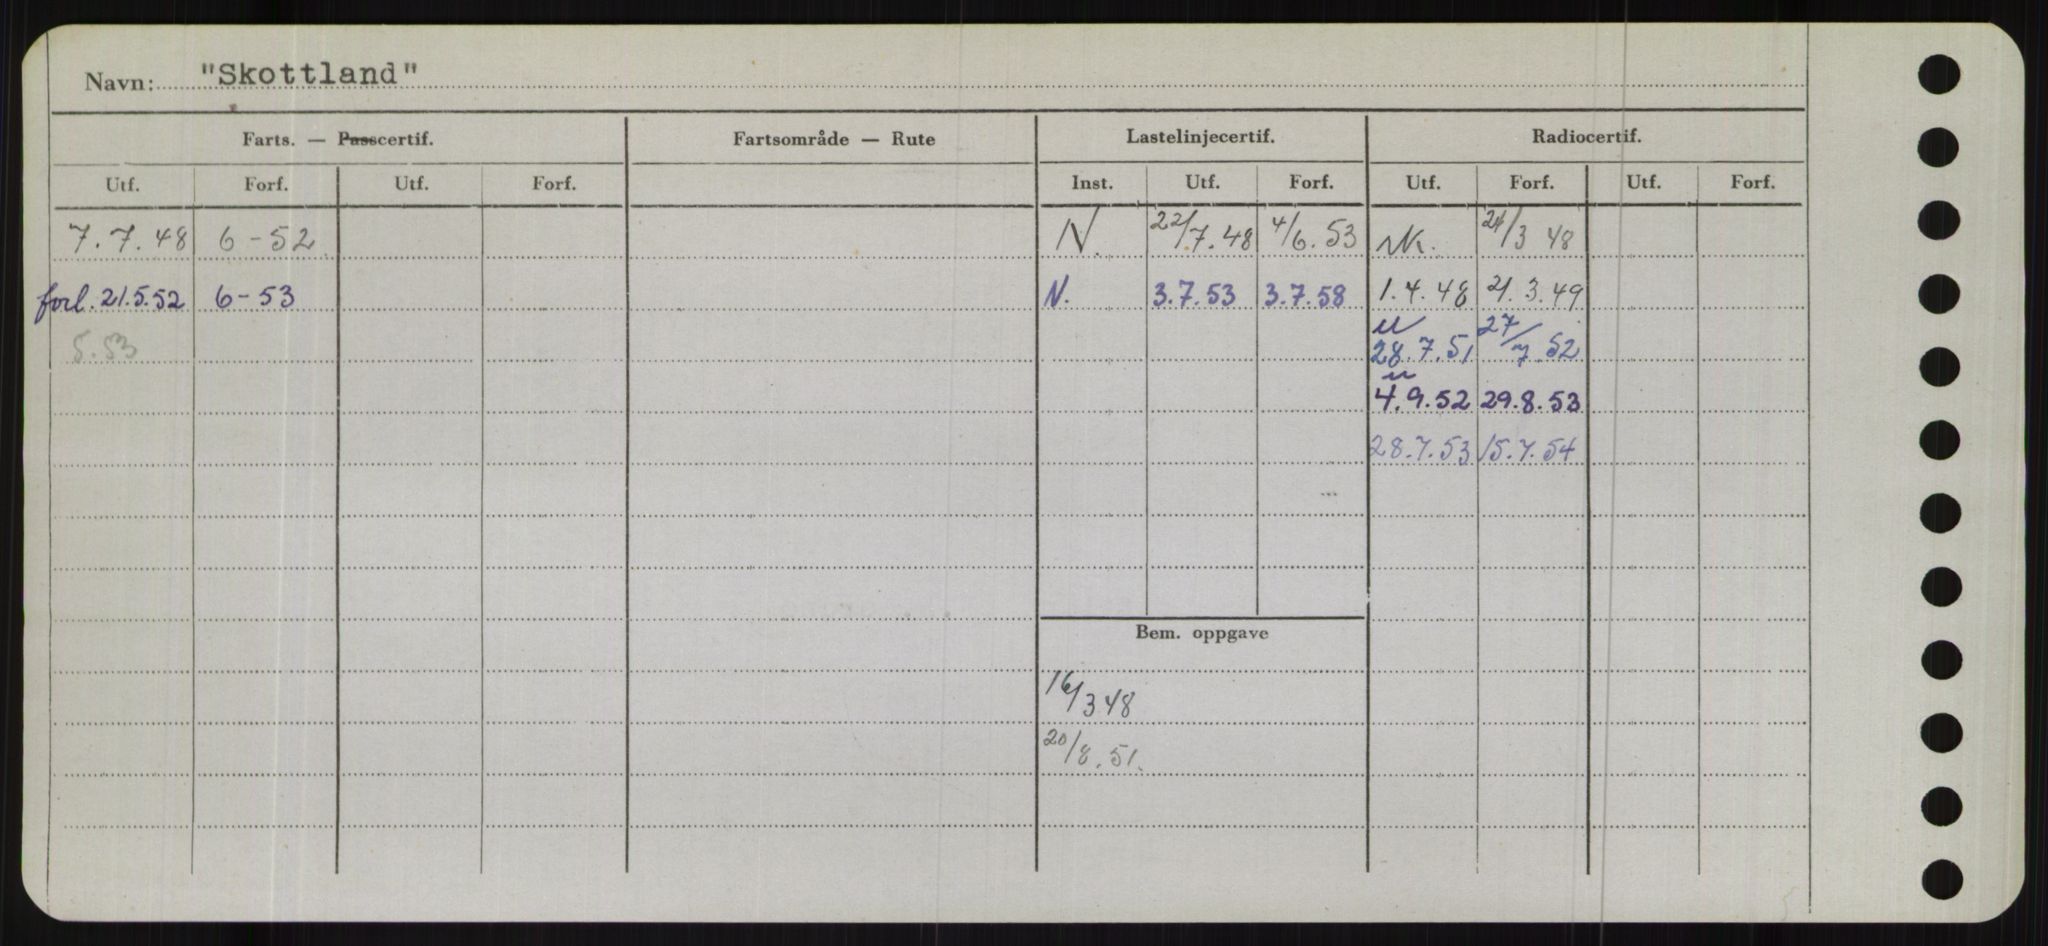 Navn: "Skottland"
Farts. — Passcertif. Fartsområde — Rute Lastelinjecertif. Radiocertif.
Utf. Forf. Utf. Forf. Inst. Utf. Forf. Utf. Forf. Utf. Forf.
7.7.48 6-52 N. 22/7.48 4/6.53 24/3 48
forl. 21.5.52 6-53 N. 3.7.53 3.7.58 1.4.48 21.3.49
5.53 28.7.51 27/7 52
4.9.52 29.8.53
28.7.53 15.7.54
Bem. oppgave
16/3 48
20/8.51.